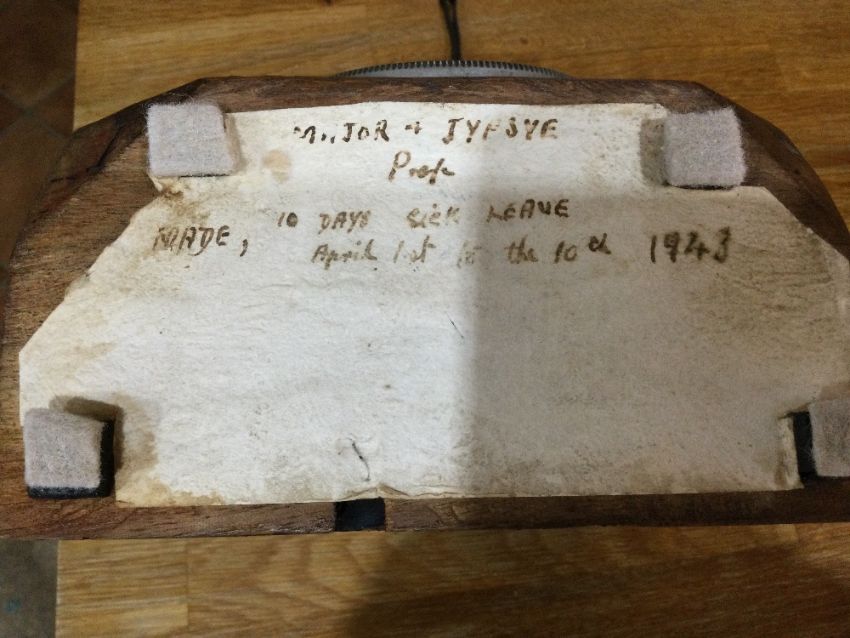 MAJOR + JYPSYE
Prop
MADE, 10 DAYS SICK LEAVE
April 1st to the 10th 1943